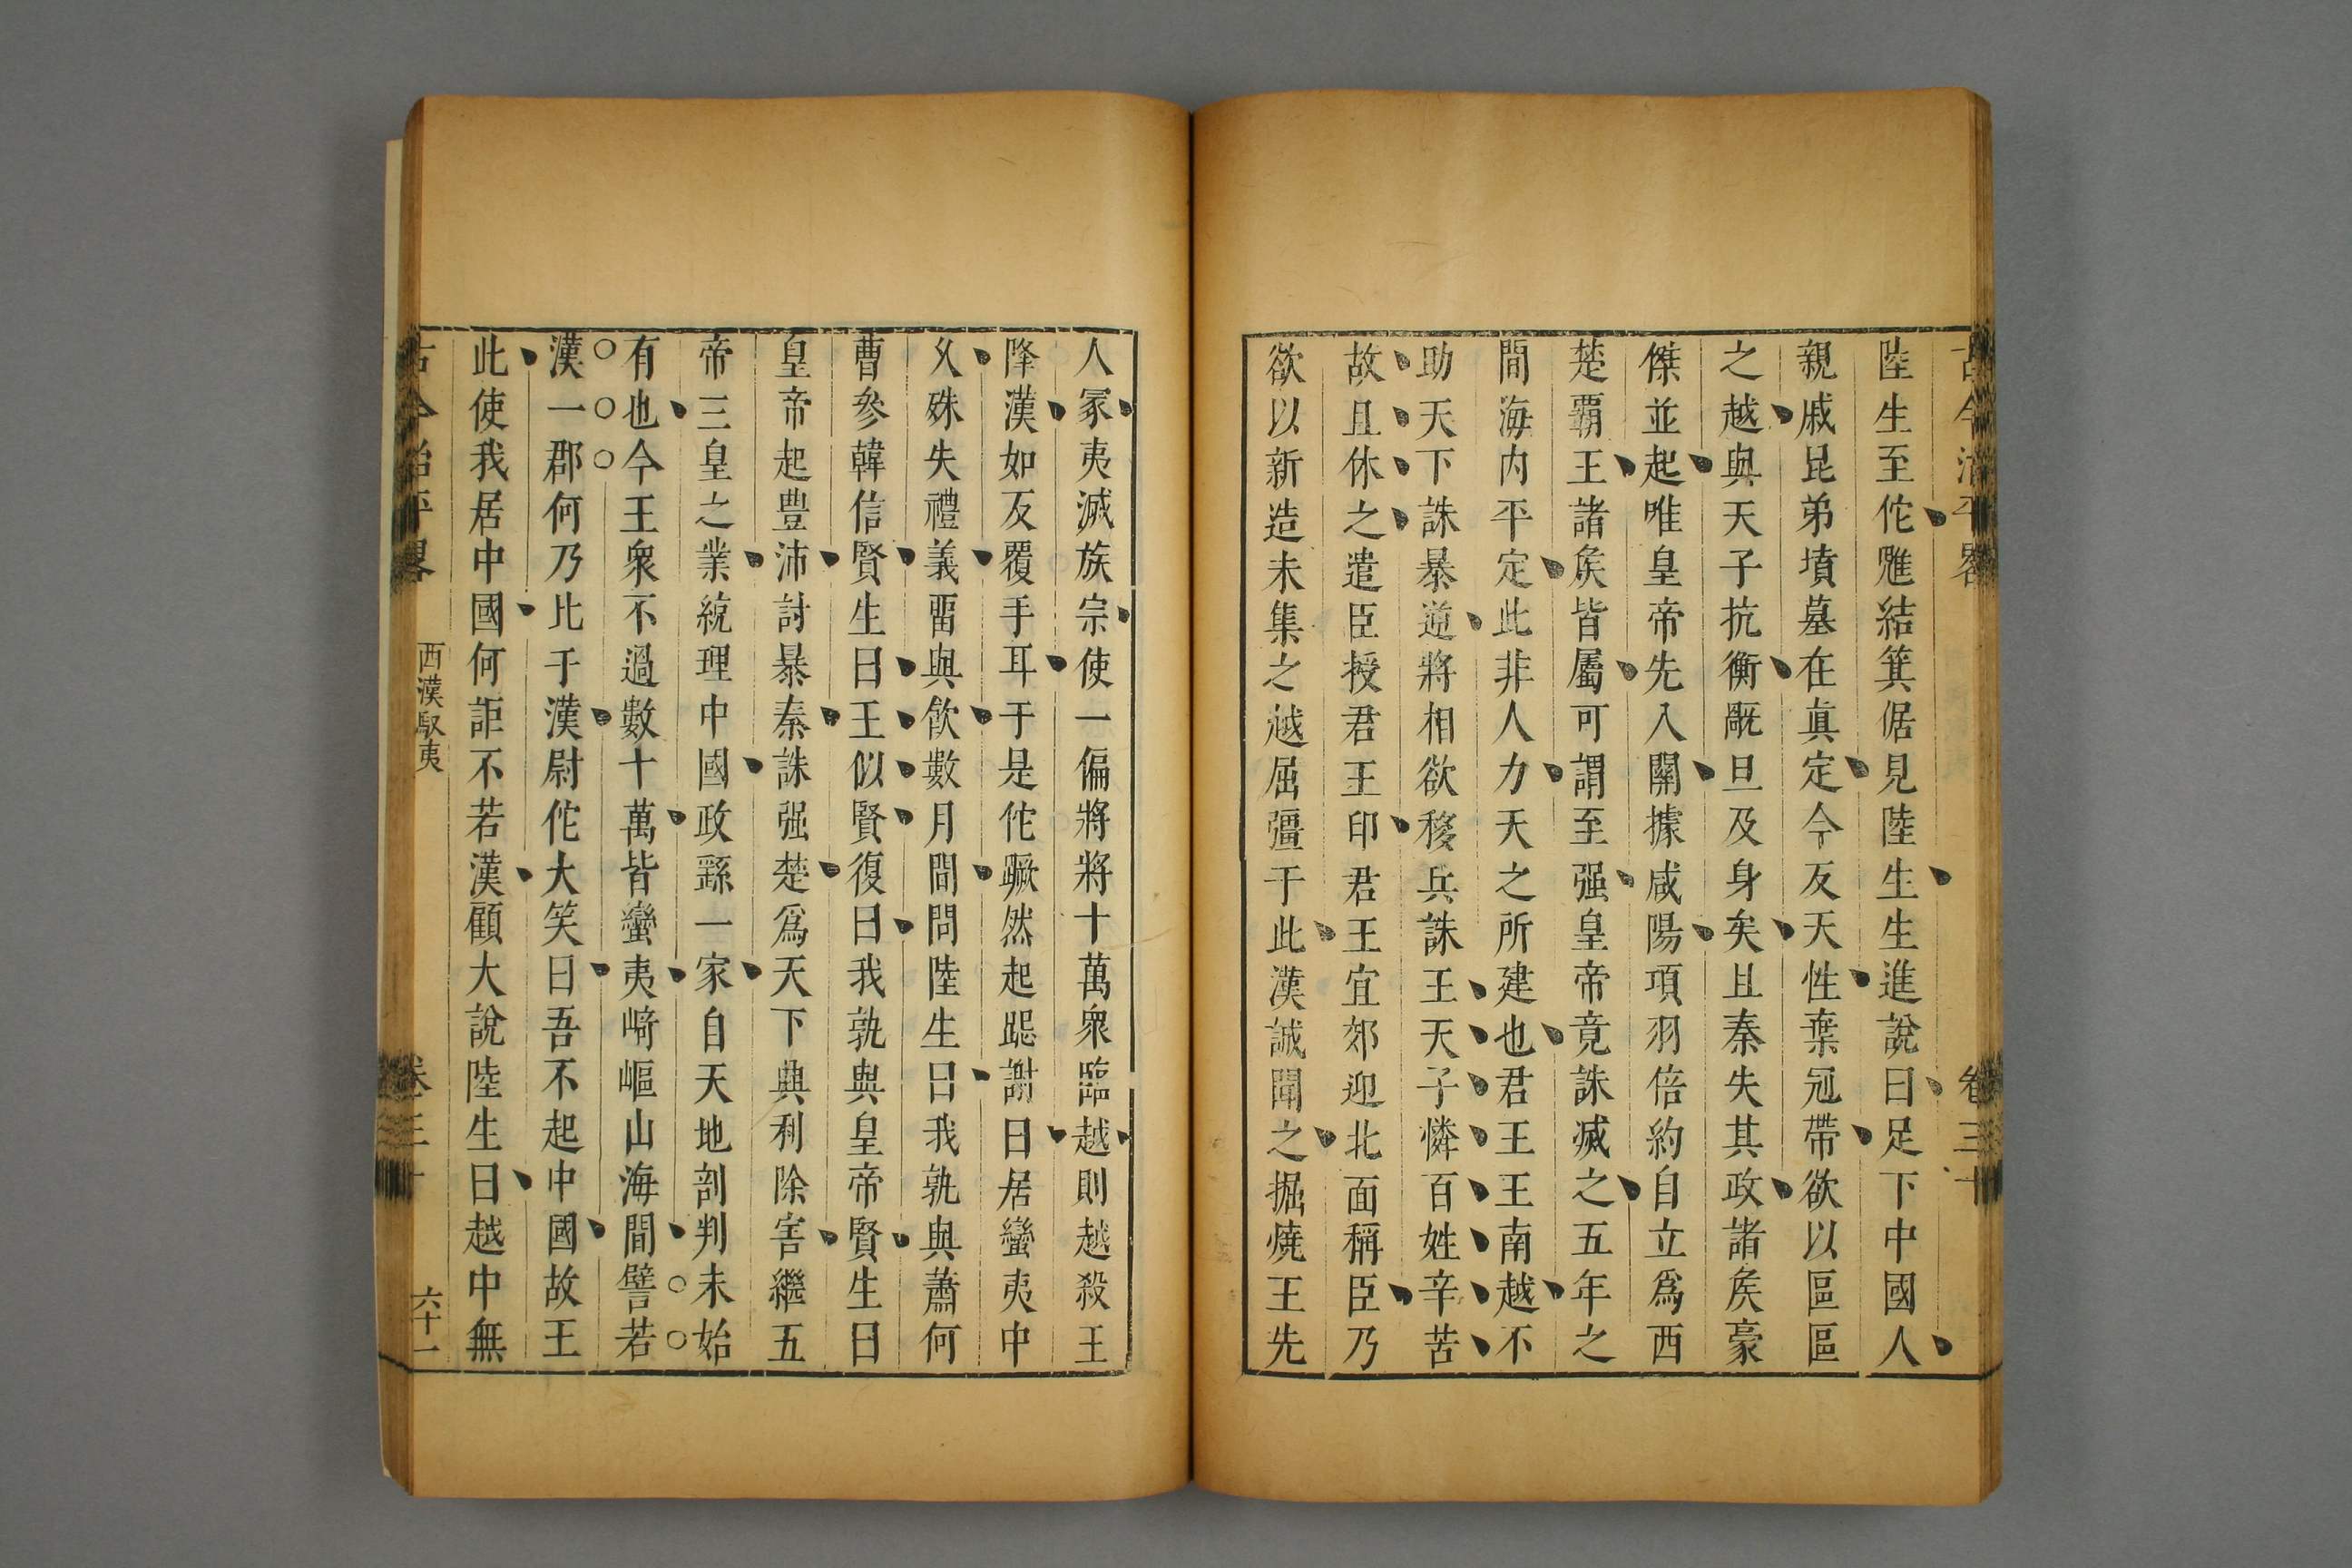 古今治平畧 卷三十
陸生至佗魋結箕倨見陸生生進說曰足下中國人
親戚昆弟墳墓在眞定今反天性棄冠帶欲以區區
之越與天子抗衡厩旦及身矣且秦失其政諸矦豪
傑並起唯皇帝先入關據咸陽項羽倍約自立爲西
楚覇王諸矦皆屬可謂至强皇帝竟誅滅之五年之
間海內平定此非人力天之所建也君王王南越不
助天下誅暴逆將相欲移兵誅王天子憐百姓辛苦
故且休之遣臣授君王印君王宜郊迎北面稱臣乃
欲以新造未集之越屈彊于此漢誠聞之掘燒王先
人冡夷滅族宗使一偏將將十萬衆臨越則越殺王
降漢如反覆手耳于是佗蹶然起跽謝曰居蠻夷中
乆殊失禮義畱與飮數月間問陸生曰我孰與蕭何
曹參韓信賢生曰王似賢復曰我孰與皇帝賢生曰
皇帝起豊沛討暴秦誅强楚爲天下興利除害繼五
帝三皇之業統理中國政繇一家自天地剖判未始
有也今王衆不過數十萬皆蠻夷崎嶇山海間譬若
漢一郡何乃比于漢尉佗大笑曰吾不起中國故王
此使我居中國何詎不若漢顧大說陸生曰越中無
古今治平畧 西漢馭夷 卷三十 六十一